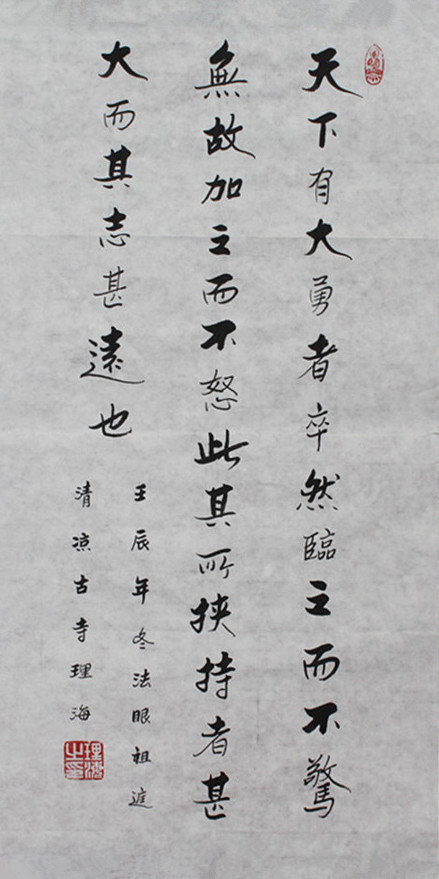 天下有大勇者卒然臨之而不驚
無故加之而不怒此其所挾持者甚
大而其志甚遠也
壬辰年冬法眼祖庭
清凉古寺理海
理海之印